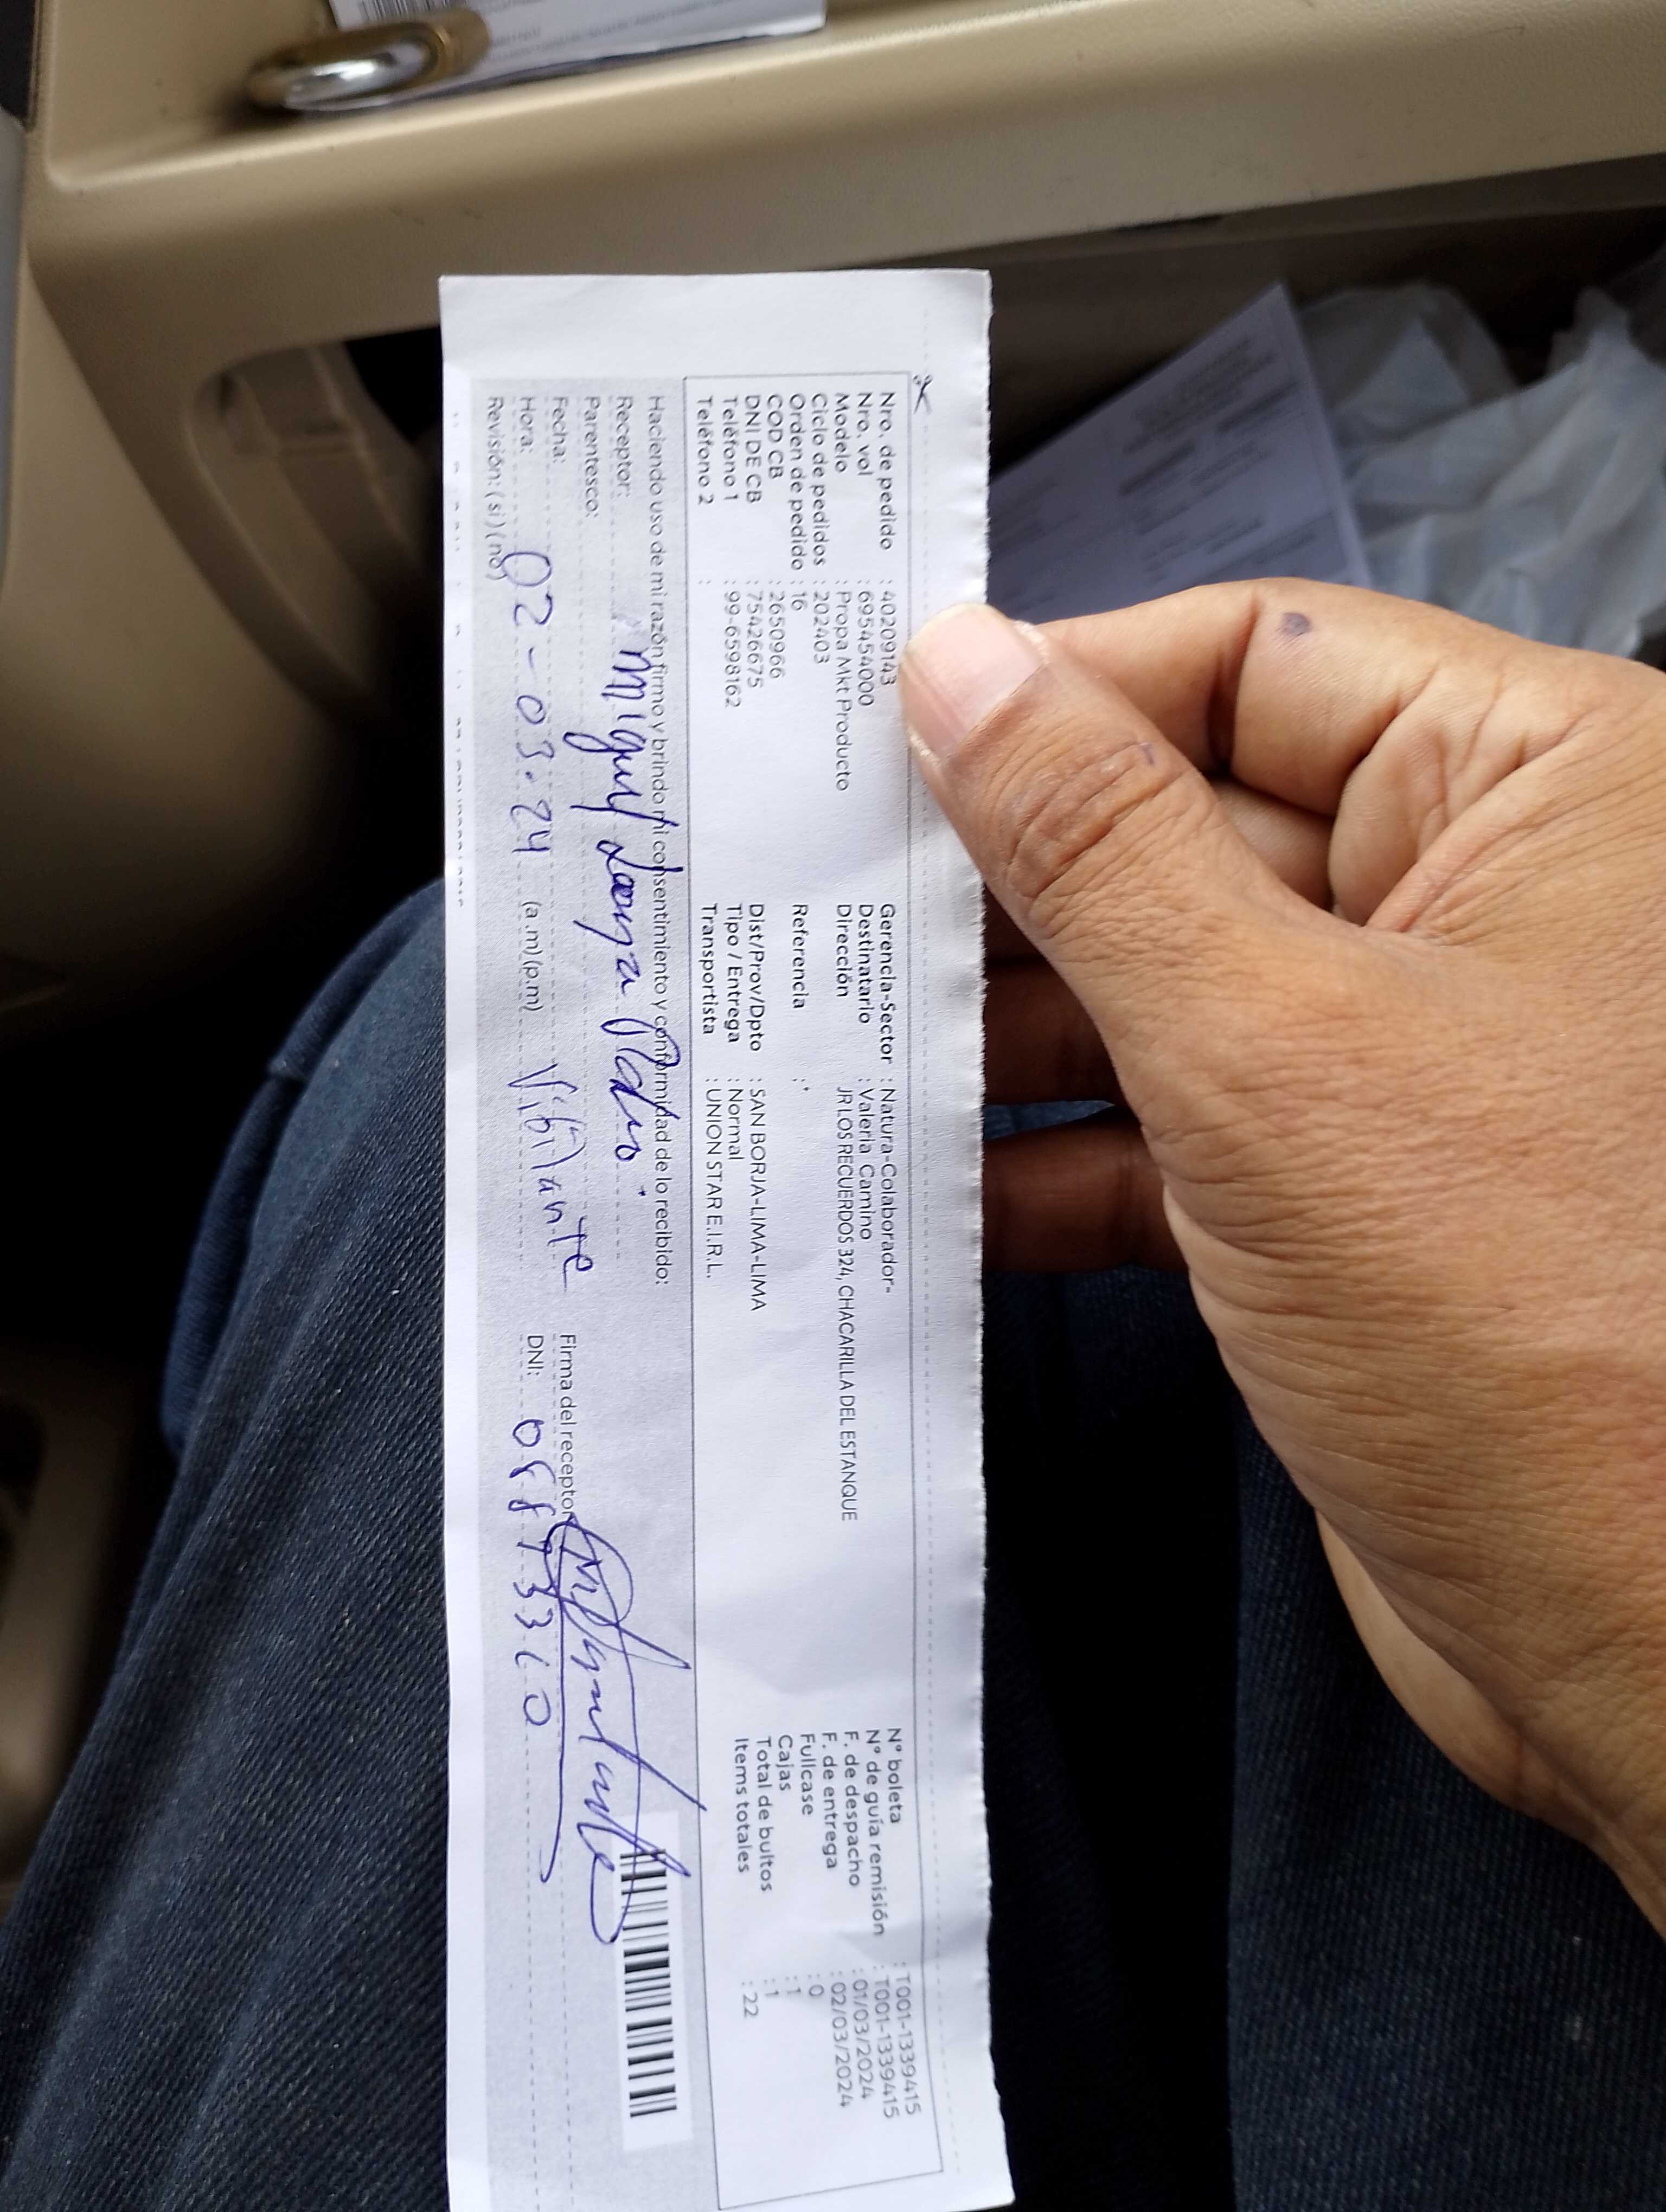 Nro. de pedido : 40209143
Nro. vol : 695454000
Modelo : Propa Mkt Producto
Ciclo de pedidos : 202403
Orden de pedido : 16
COD CB : 2650966
DNI DE CB : 75426675
Teléfono 1 : 99-6598162
Teléfono 2 :
Gerencia-Sector : Natura-Colaborador-
Destinatario : Valeria Camino
Dirección JR LOS RECUERDOS 324, CHACARILLA DEL ESTANQUE
Referencia : *
Dist/Prov/Dpto : SAN BORJA-LIMA-LIMA
Tipo / Entrega : Normal
Transportista : UNION STAR E.I.R.L.
N° boleta : T001-1339415
N° de guía remisión : T001-1339415
F. de despacho : 01/03/2024
F. de entrega : 02/03/2024
Fullcase : 0
Cajas : 1
Total de bultos : 1
Items totales : 22
Haciendo uso de mi razón firmo y brindo mi consentimiento y conformidad de lo recibido:
Receptor: Miguel
Parentesco:
Fecha:
Hora: 02-03.24 (a.m)(p.m)
Revisión: (si) (no)
Firma del receptor
DNI: